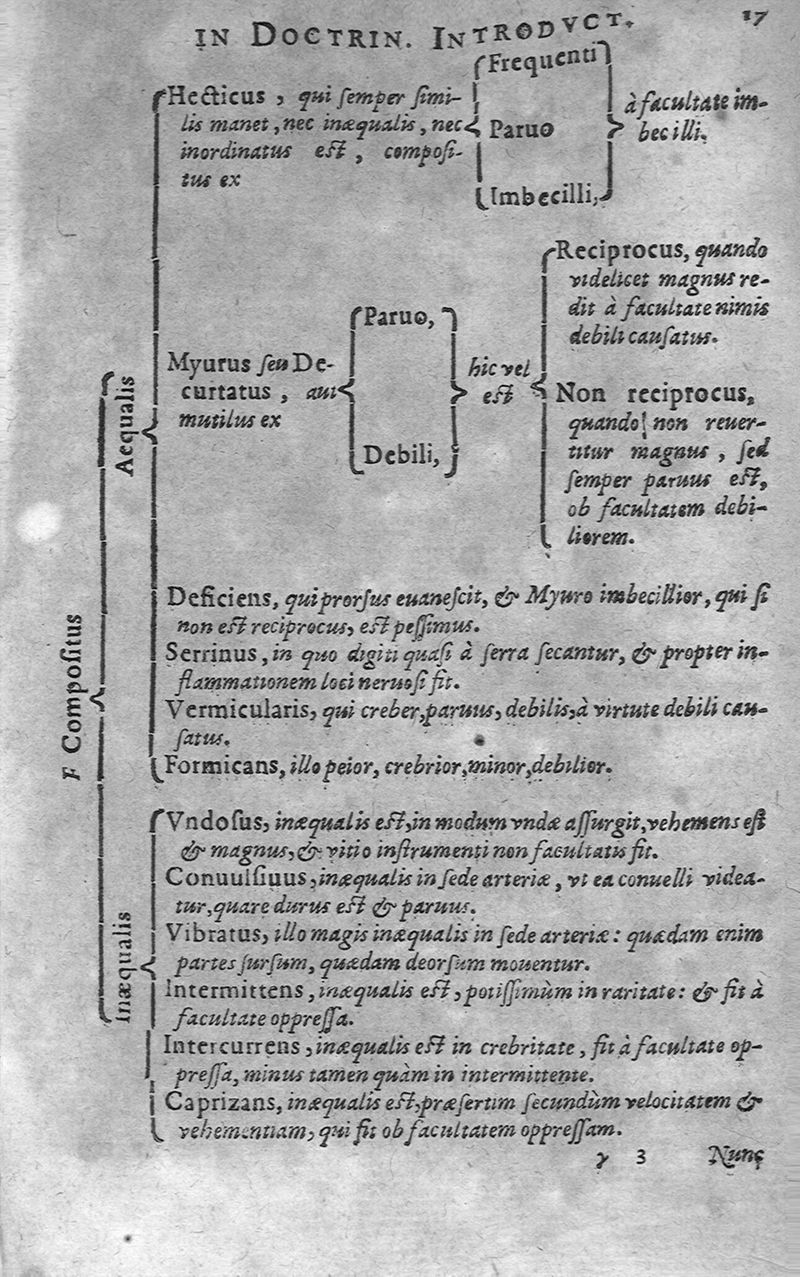 IN DOCTRIN. INTRODVCT.
17
F Compositus
Aequalis
Hecticus, qui semper simi-
lis manet, nec inæqualis, nec
inordinatus est, composi-
tus ex
Frequenti
Paruo
Imbecilli,
à facultate im-
becilli.
Myurus seu De-
curtatus, aut
mutilus ex
Paruo,
Debili,
hic vel
est
Reciprocus, quando
videlicet magnus re-
dit à facultate nimis
debili causatus.
Non reciprocus,
quando non reuer-
titur magnus, sed
semper paruus est,
ob facultatem debi-
liorem.
Deficiens, qui prorsus euanescit, & Myuro imbecillior, qui si
non est reciprocus, est pessimus.
Serrinus, in quo digiti quasi à serra secantur, & propter in-
flammationem loci neruosi fit.
Vermicularis, qui creber, paruus, debilis, à virtute debili cau-
satus.
Formicans, illo peior, crebrior, minor, debilior.
inæqualis
Vndosus, inæqualis est, in modum vndæ assurgit, vehemens est
& magnus, & vitio instrumenti non facultatis fit.
Conuulsiuus, inæqualis in sede arteriæ, vt ea conuelli videa-
tur, quare durus est & paruus.
Vibratus, illo magis inæqualis in sede arteriæ: quædam enim
partes sursum, quædam deorsum mouentur.
Intermittens, inæqualis est, potissimùm in raritate: & fit à
facultate oppressa.
Intercurrens, inæqualis est in crebritate, fit à facultate op-
pressa, minus tamen quàm in intermittente.
Caprizans, inæqualis est, præsertim secundùm velocitatem &
vehementiam, qui fit ob facultatem oppressam.
γ 3
Nunc